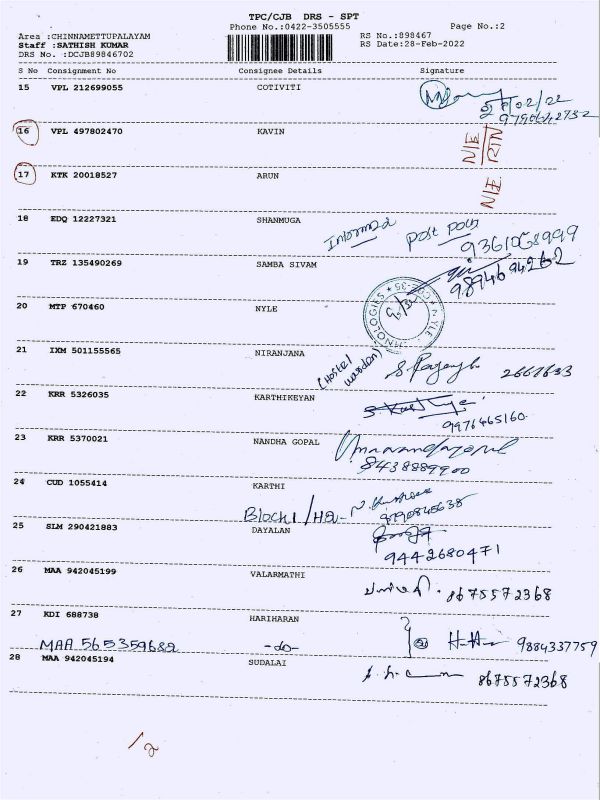 TPC/CJB DRS - SPT
Phone No.:0422-3505555 Page No.:2
Area :CHINNAMETTUPALAYAM RS No.:898467
Staff :SATHISH KUMAR RS Date:28-Feb-2022
DRS No. :DCJB89846702
S No Consignment No Consignee Details Signature
15 VPL 212699055 COTIVITI
9790642732
16 VPL 497802470 KAVIN N/E RTN
17 KTK 20018527 ARUN N/E
18 EDQ 12227321 SHANMUGA
post poth
9361068999
19 TRZ 135490269 SAMBA SIVAM
9894694262
20 MTP 670460 NYLE
NYLE
21 IXM 501155565 NIRANJANA (Hostel warden) 2667633
22 KRR 5326035 KARTHIKEYAN
9976465160
23 KRR 5370021 NANDHA GOPAL
8438889900
24 CUD 1055414 KARTHI
Block 1/H2-
9790845638
25 SLM 290421883 DAYALAN
9442680471
26 MAA 942045199 VALARMATHI 8675572368
27 KDI 688738 HARIHARAN
MAA 565359682 -do- 9884337759
28 MAA 942045194 SUDALAI 8675572368
1/2